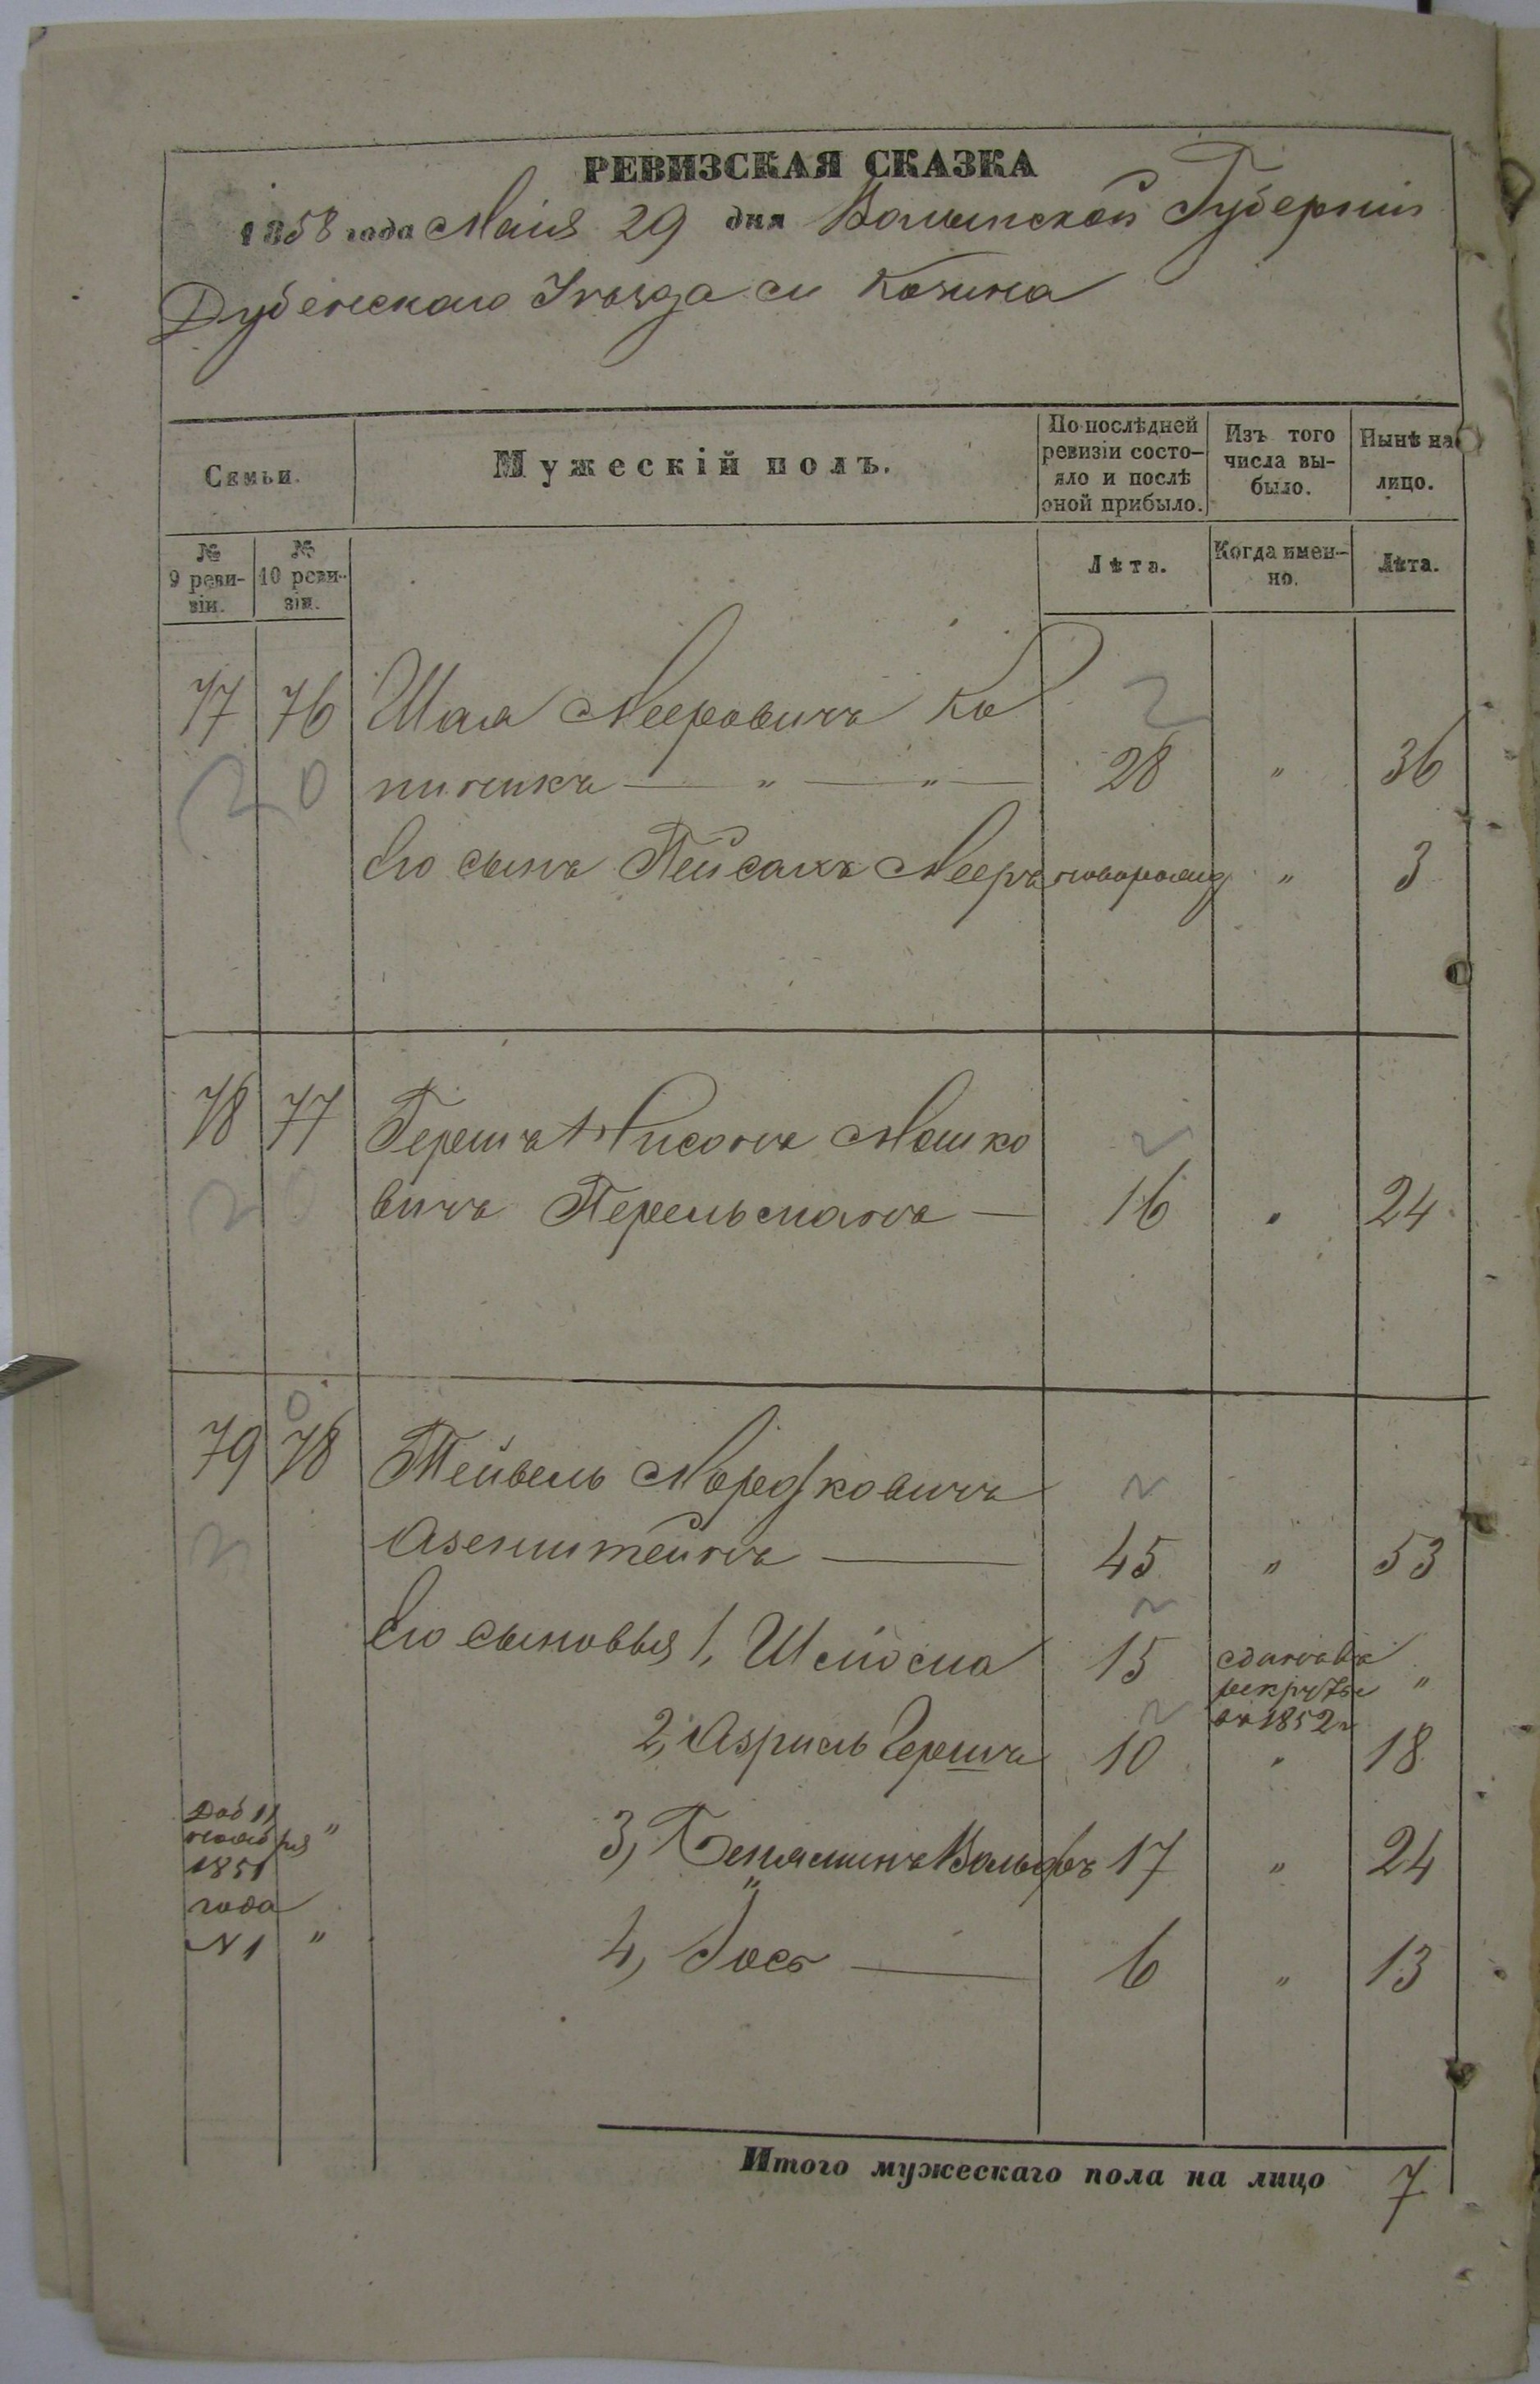 РЕВИЗСКАЯ СКАЗКА
1858 года Маія 29 дня Волынской Губерніи
Дубенскаго Уѣзда м Козина
Семьи. Мужескій полъ. По послѣдней ревизіи состо-яло и послѣ оной прибыло. Изъ того числа вы-было. Нынѣ на лицо.
№ 9 реви-зіи. № 10 реви-зіи. Лѣта. Когда имен-но. Лѣта.
77 76 Шая Мееровичъ Ко
пичникъ — " — " — 28 " 36
Его сынъ Пейсахъ Мееръ новорожд " 3
78 77 Гершъ Нисонъ Мошко
вичъ Перельманъ — 16 " 24
79 78 Тейвель Мордковичъ
Азенштейнъ — 45 " 53
Его сыновья 1, Шлиома 15 сданъ въ рекруты въ 1852 г "
2, Азриль Гершъ 10 " 18
Доб 11 ноября 1851 года № 1
" 3, Беняминъ Вольфъ 17 " 24
" 4, Іось — 6 " 13
Итого мужескаго пола на лицо 7